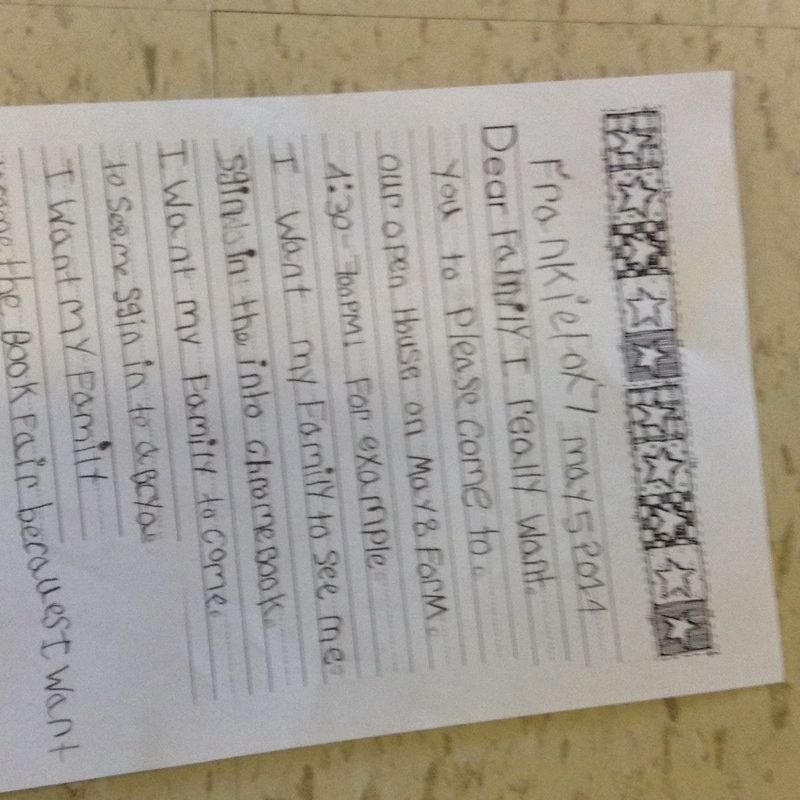 Frankie lok7 may 5 2014
Dear Family I really want.
you to please come to.
our open House on May 8 Form.
4:30-700PM! For example.
I want my Family to see me.
sgin in the into chromebook.
I want my Family to come.
to see me sgin in to abcya.
I want my Family
the Book Fair becauesI want